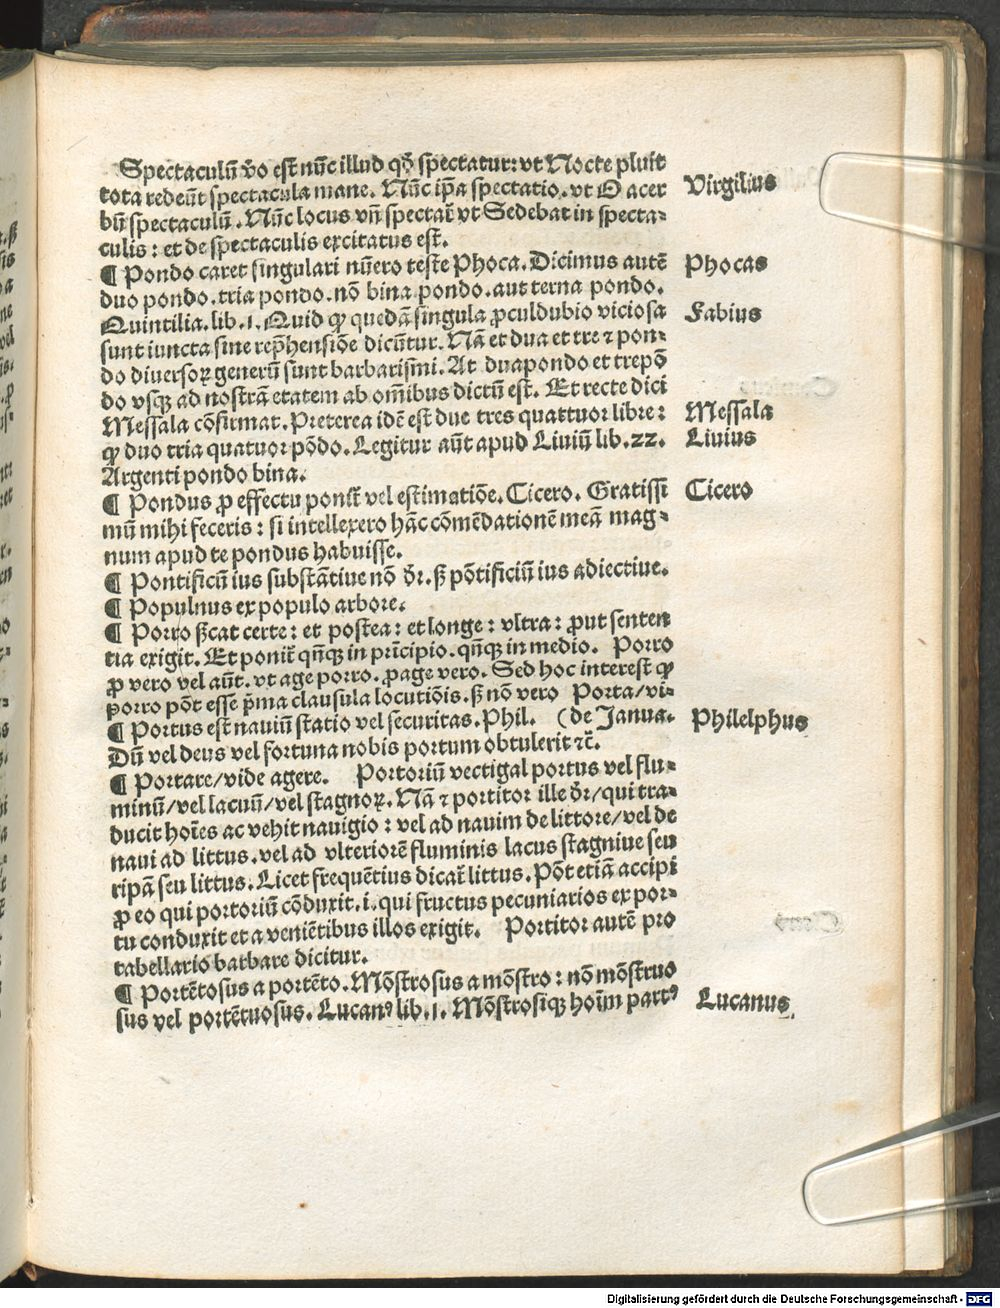 Spectaculū v̄o est nūc illud qd̄ spectatur: vt Nocte pluit
tota redeūt spectacula mane. Nūc ip̄a spectatio. vt O acer
bū spectaculū. Nūc locus vn̄ spectat᷑ vt Sedebat in specta⸗
culis: et de spectaculis excitatus est.
Virgilius
¶ Pondo caret singulari nūero teste Phoca. Dicimus autē
duo pondo. tria pondo. nō bina pondo. aut terna pondo.
Phocas
Quintilia. lib. 1. Quid ꝙ quedā singula ꝓculdubio viciosa
sunt iuncta sine rep̄hensiōe dicūtur. Nā et dua et tre ⁊ pon⸗
do diuersoꝝ generū sunt barbarismi. At duapondo et trepō
do vsqꝫ ad nostrā etatem ab om̄ibus dictū est. Et recte dici
Messala cōfirmat. Preterea idē est due tres quattuor libre:
ꝙ duo tria quatuor pōdo. Legitur aūt apud Liuiū lib. 22.
Argenti pondo bina.
Fabius
Messala
Liuius
¶ Pondus ꝓ effectu ponit᷑ vel estimatiōe. Cicero. Gratissi
mū mihi feceris: si intellexero hāc cōmēdationē meā mag⸗
num apud te pondus habuisse.
Cicero
¶ Pontificū ius substātiue nō dr̄. sꝫ pōtificiū ius adiectiue.
¶ Populnus ex populo arbore.
¶ Porro sīcat certe: et postea: et longe: vltra: ꝓut senten
tia exigit. Et ponit᷑ qn̄qꝫ in prīcipio. qn̄qꝫ in medio. Porro
ꝓ vero vel aūt. vt age porro. ꝓ age vero. Sed hoc interest ꝙ
porro pōt esse p̄ma clausula locutiōis. sꝫ nō vero Porta/vi⸗
¶ Portus est nauiū statio vel securitas. Phil. (de Janua.
Dū vel deus vel fortuna nobis portum obtulerit ⁊c̄.
Philelphus
¶ Portare/vide agere. Portoriū vectigal portus vel flu⸗
minū/vel lacuū/vel stagnoꝝ. Nā ⁊ portitor ille dr̄/qui tra⸗
ducit hoīes ac vehit nauigio: vel ad nauim de littore/vel de
naui ad littus. vel ad vlteriorē fluminis lacus stagniue seu
ripā seu littus. Licet frequētius dicat᷑ littus. Pōt etiā accipi
ꝓ eo qui portoriū cōduxit. i. qui fructus pecuniarios ex por⸗
tu conduxit et a veniētibus illos exigit. Portitor autē pro
tabellario barbare dicitur.
¶ Portētosus a portēto. Mōstrosus a mōstro: nō mōstruo
sus vel portētuosus. Lucanꝰ lib. 1. Mōstrosiqꝫ hoīm partꝰ
Lucanus
Digitalisierung gefördert durch die Deutsche Forschungsgemeinschaft - DFG